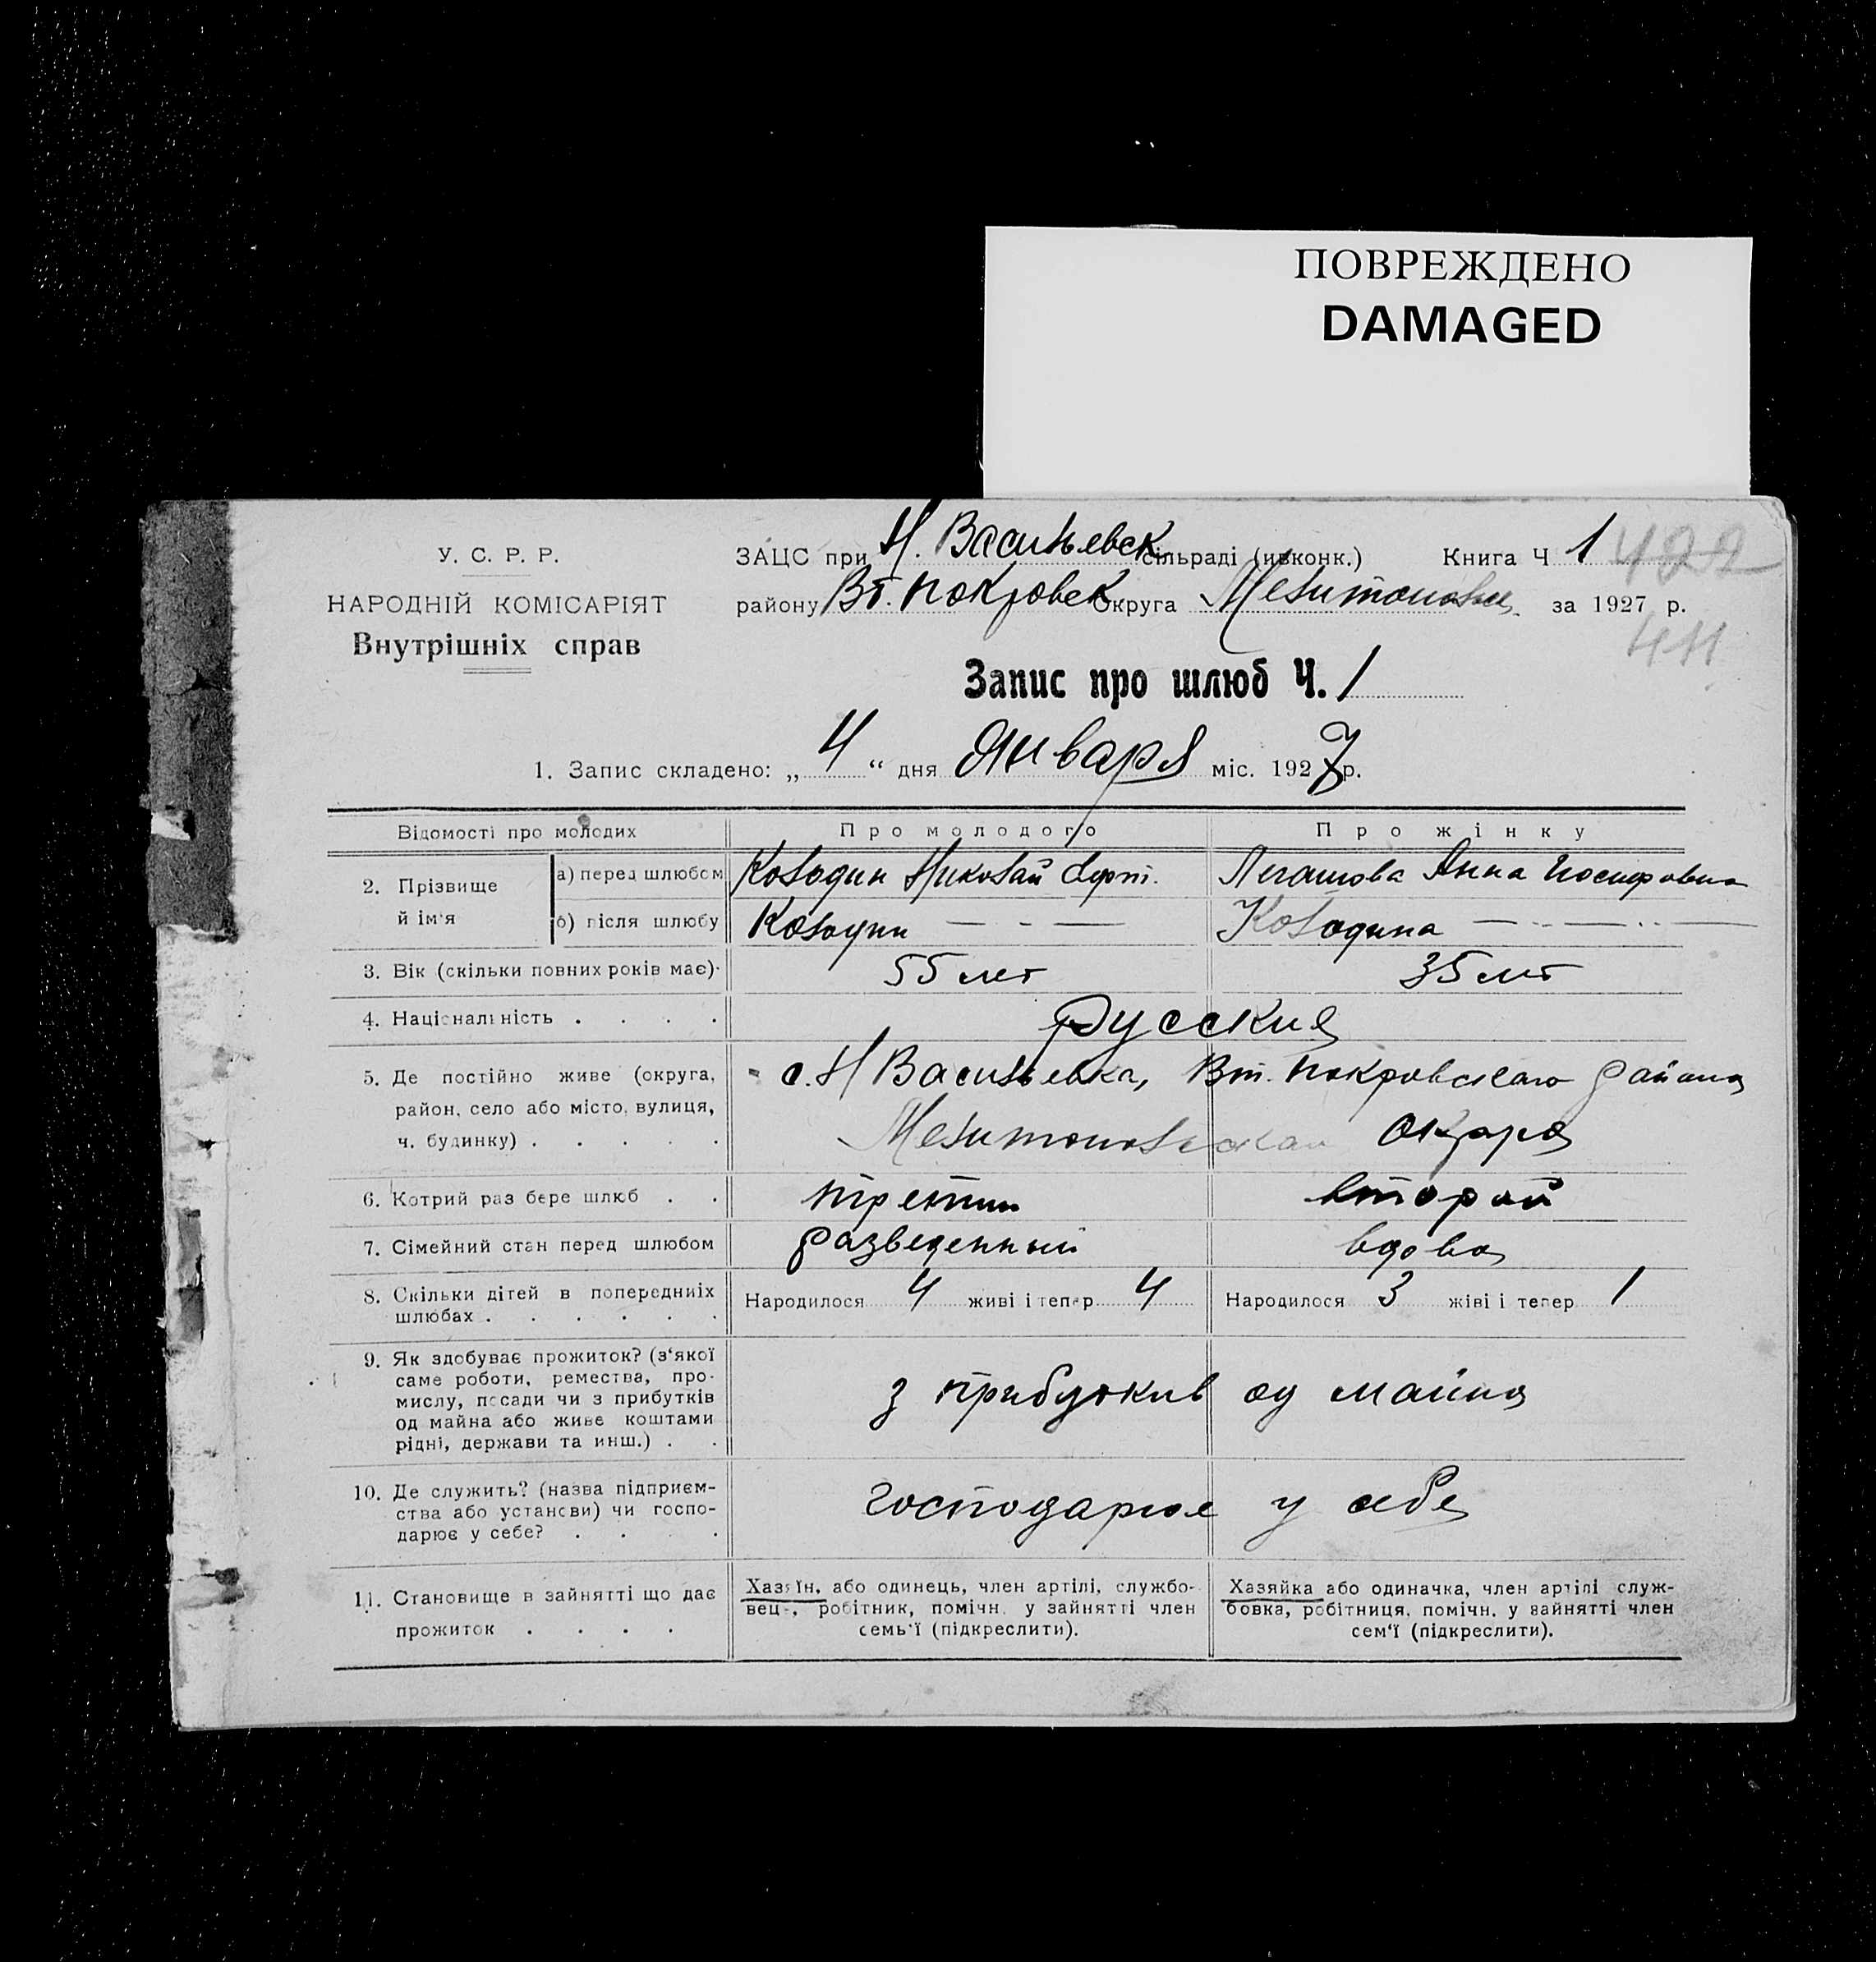 ПОВРЕЖДЕНО
DAMAGED
У. С. Р. Р.
НАРОДНІЙ КОМІСАРІЯТ
Внутрішніх справ
ЗАЦС при Н. Васильевск сільраді (ивконк.) Книга Ч 1 422
району Вт. Покровск Округа за 1927 р.
411
Запис про шлюб Ч. 1
1. Запис складено: „ 4 “ дня Января міс. 1927 р.
Відомості про молодих Про молодого Про жінку
2. Прізвище й ім'я
а) перед шлюбом Колодин Николай Анна Иосифовна
б) після шлюбу Колодин — - — Колодина — - — - —
3. Вік (скільки повних років має) 55 лет 35 лет
4. Національність . . . . Русские
5. Де постійно живе (округа, район, село або місто, вулиця, ч. будинку) . . . . .
с. Н Васильевка, Вт. Покровского района
округа
6. Котрий раз бере шлюб . . третий второй
7. Сімейний стан перед шлюбом разведенный вдова
8. Скільки дітей в попередніїх шлюбах . . . . . .
Народилося 4 живі і тепер 4 Народилося 3 жіві і тепер 1
9. Як здобуває прожиток? (з'якої
саме роботи, ремества, про-
мислу, посади чи з прибутків
од майна або живе коштами
рідні, держави та инш.) . .
з прибутків од майна
10. Де служить? (назва підприєм-
ства або установи) чи госпо-
дарює у себе? . . . .
господарює у себе
11. Становище в зайнятті що дає
прожиток . . . .
Хазяїн, або одинець, член артілі, службо-
вець, робітник, помічн. у зайнятті член
семь'ї (підкреслити).
Хазяйка або одиначка, член артілі служ-
бовка, робітниця, помічн. у вайнятті член
сем'ї (підкреслити).